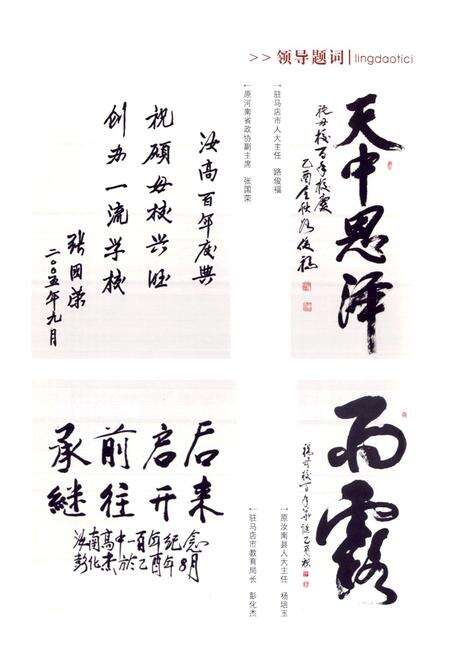 >> 领导题词 | lingdaotici
天中恩泽
祝母校百年校庆
乙酉金秋路俊福
驻马店市人大主任 路俊福
原河南省政协副主席 张国荣
汝高百年庆典
祝愿母校兴旺
创办一流学校
张国荣
二〇〇五年九月
雨露
祝母校百年华诞乙酉秋
原汝南县人大主任 杨培玉
驻马店市教育局长 彭化杰
承前启后
继往开来
汝南高中一百年纪念
彭化杰於乙酉年8月